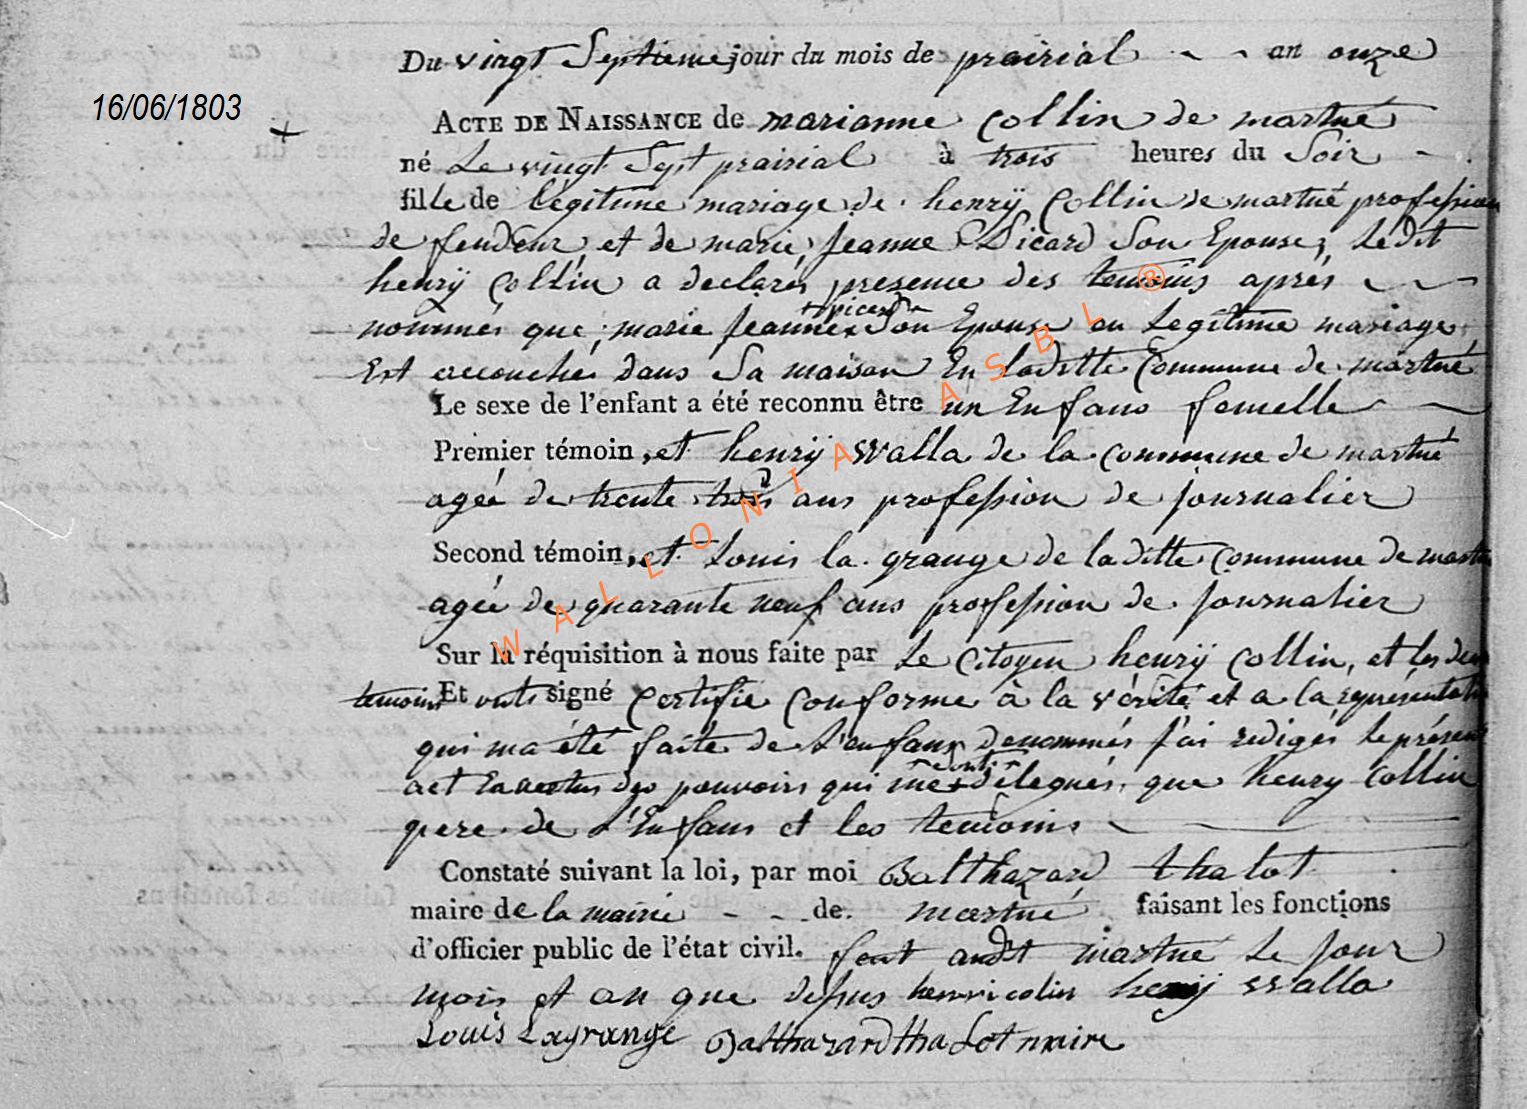 Du vingt Septieme jour du mois de prairial - - an onze
16/06/1803
ACTE DE NAISSANCE de marianne Collin de martué
né Le vingt Sept prairial à trois heures du Soir -
fille de légitime mariage de henrÿ Collin de martué profession
de fendeur et de marie Jeanne Dicard Son Epouse, Ledit
henrÿ Collin a declarés presence des temoins aprés
nommés que, marie Jeanne Son Epouse en Legitime mariage
Est accouchés dans Sa maison En laditte Commune de martué
Le sexe de l'enfant a été reconnu être un Enfans femelle
Premier témoin, et henrÿ Walla de la commune de martué
ageé de trente trois ans profession de journalier
Second témoin, et Louis la grange de laditte Commune de
ageé de quarante neuf ans profession de journalier
Sur la réquisition à nous faite par Le Citoyen henrÿ Collin, et les
temoins Et onts signé Certifie Conforme à la vérité et a la
qui ma été faite de L'enfans denommés J'ai redigés le présent
act des pouvoirs qui me sont délegués, que henry Collin
pere de L'Enfans et les temoins
Constaté suivant la loi, par moi Balthazard thalot
maire de la mairie - - de martué faisant les fonctions
d'officier public de l'état civil. martué Le Jour
mois et an que henri colin henrij Walla
Louis Lagrange Balthazard thalot maire
WALLONIA ASBL ®